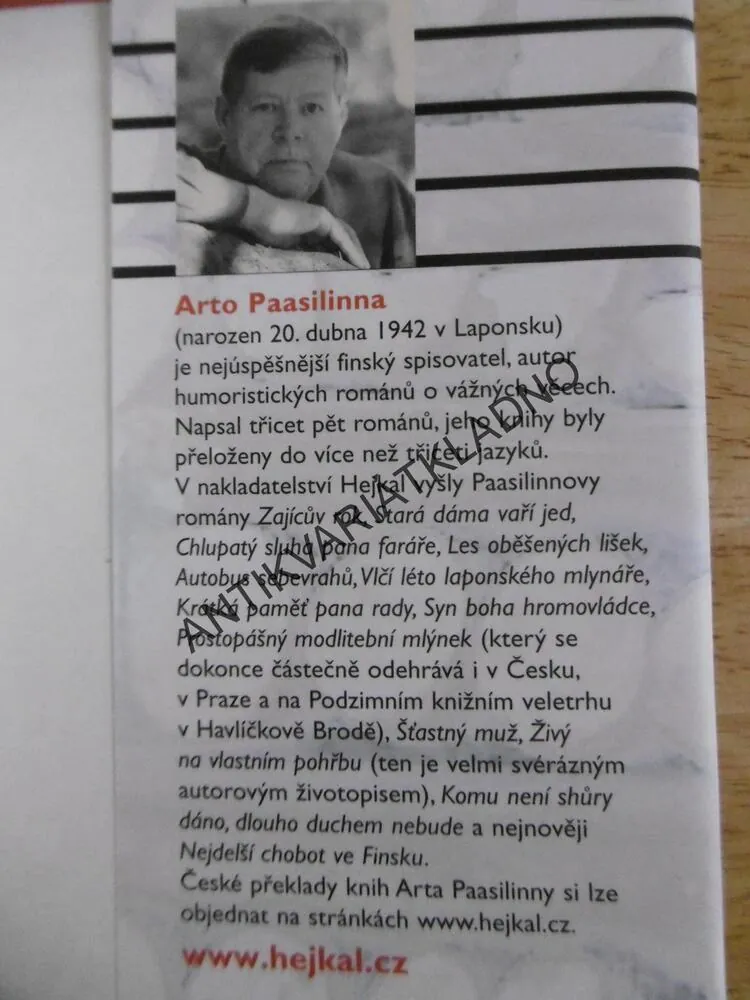 Arto Paasilinna
(narozen 20. dubna 1942 v Laponsku)
je nejúspěšnější finský spisovatel, autor
humoristických románů o vážných věcech.
Napsal třicet pět románů, jeho knihy byly
přeloženy do více než třiceti jazyků.
V nakladatelství Hejkal vyšly Paasilinnovy
romány Zajícův rok, Stará dáma vaří jed,
Chlupatý sluha pana faráře, Les oběšených lišek,
Autobus sebevrahů, Vlčí léto laponského mlynáře,
Krátká paměť pana rady, Syn boha hromovládce,
Prostopášný modlitební mlýnek (který se
dokonce částečně odehrává i v Česku,
v Praze a na Podzimním knižním veletrhu
v Havlíčkově Brodě), Šťastný muž, Živý
na vlastním pohřbu (ten je velmi svérázným
autorovým životopisem), Komu není shůry
dáno, dlouho duchem nebude a nejnověji
Nejdelší chobot ve Finsku.
České překlady knih Arta Paasilinny si lze
objednat na stránkách www.hejkal.cz.
www.hejkal.cz
ANTIKVARIATKLADNO